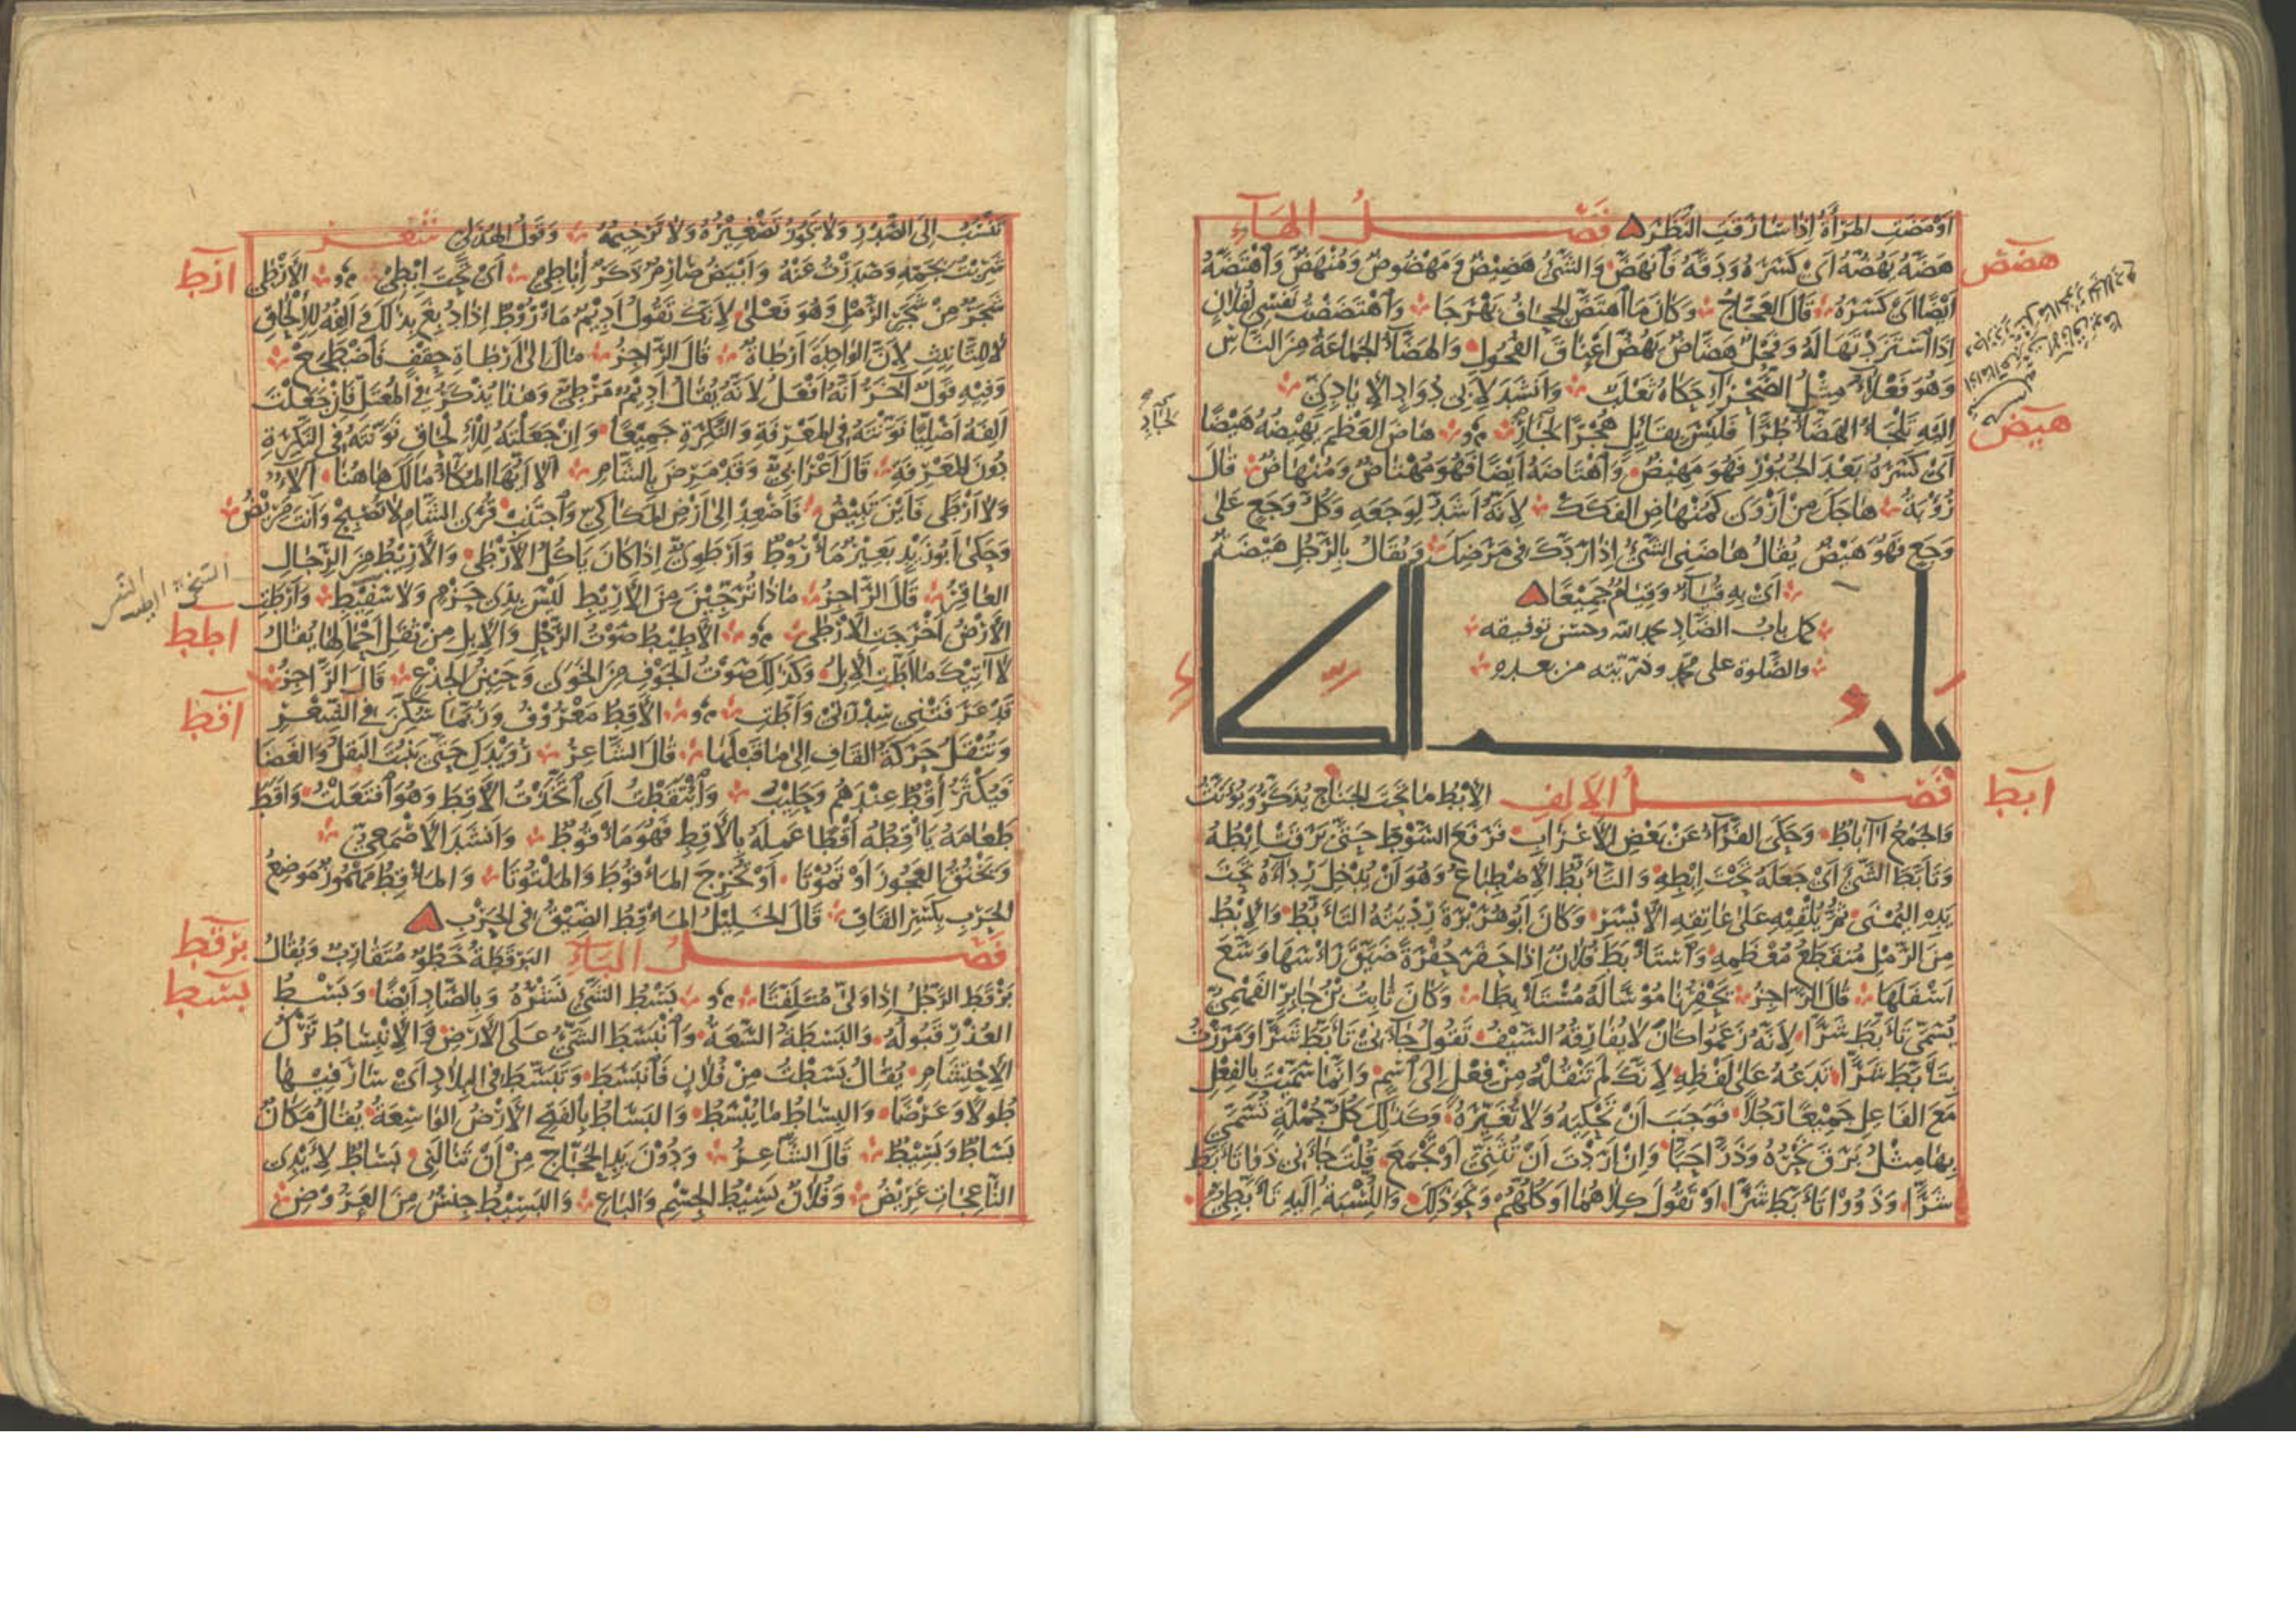 أَوْمَضَتِ المَرْأَةُ إِذَا سَارَقَتِ النَّظَرَ فَصْلُ الهَاءِ
هضض
هَضَّهُ يَهُضُّهُ أَيْ كَسَرَهُ وَدَقَّهُ فَانْهَضَّ وَالشَّيْءُ هَضِيضٌ وَمَهْضُوضٌ وَمُنْهَضٌّ وَاهْتَضَّهُ
أَيْضًا أَيْ كَسَرَهُ قَالَ العَجَّاجُ وَكَانَ مَا اهْتَضَّ الجِحَافُ بَهْرَجَا وَاهْتَضَضْتُ نَفْسِي لِفُلَانٍ
إِذَا اسْتَزَدْتَهَا لَهُ وَفَحْلٌ هَضَّاضٌ يَهُضُّ أَعْنَاقَ الفُحُولِ وَالهَضَّاءُ الجَمَاعَةُ مِنَ النَّاسِ
وَهُوَ فَعْلَاءُ مِثْلُ الصَّحْرَاءِ حَكَاهُ ثَعْلَبٌ وَأَنْشَدَ لِأَبِي دُوَادٍ الإِيَادِيِّ
هيض
إِلَيْهِ تَلْجَأُ الهَضَّاءُ طُرًّا فَلَيْسَ بِقَائِلٍ هُجْرًا لِجَادِ هَاضَ العَظْمَ يَهِيضُهُ هَيْضًا
أَيْ كَسَرَهُ بَعْدَ الجُبُورِ فَهُوَ مَهِيضٌ وَاهْتَاضَهُ أَيْضًا فَهُوَ مُهْتَاضٌ وَمُنْهَاضٌ قَالَ
رُؤْبَةُ هَاجَكَ مِنْ أَرْوَى كَمُنْهَاضِ الفَكَكْ لِأَنَّهُ أَشَدُّ لِوَجَعِهِ وَكُلُّ وَجَعٍ عَلَى
وَجَعٍ فَهُوَ هَيْضٌ يُقَالُ هَاضَنِي الشَّيْءُ إِذَا رَدَّكَ فِي مَرَضِكَ وَيُقَالُ بِالرَّجُلِ هَيْضَةٌ
أَيْ بِهِ قُيَاءٌ وَقِيَامٌ جَمِيعًا
كمل باب الضاد بحمد الله وحسن توفيقه
والصلوة على محمد وذريته من بعده
بَابُ الطَّاءِ
ابط
فَصْلُ الأَلِفِ الإِبْطُ مَا تَحْتَ الجَنَاحِ يُذَكَّرُ وَيُؤَنَّثُ
وَالجَمْعُ آبَاطٌ وَحَكَى الفَرَّاءُ عَنْ بَعْضِ الأَعْرَابِ فَرَفَعَ السَّوْطَ حَتَّى بَرَقَتْ إِبْطُهُ
وَتَأَبَّطَ الشَّيْءَ أَيْ جَعَلَهُ تَحْتَ إِبْطِهِ وَالتَّأَبُّطُ الاِضْطِبَاعُ وَهُوَ أَنْ يُدْخِلَ رِدَاءَهُ تَحْتَ
يَدِهِ اليُمْنَى ثُمَّ يُلْقِيَهُ عَلَى عَاتِقِهِ الأَيْسَرِ وَكَانَ أَبُو هُرَيْرَةَ رِدْيَتُهُ التَّأَبُّطُ وَالإِبْطُ
مِنَ الرَّمْلِ مُنْقَطَعُ مُعْظَمِهِ وَاسْتَأْبَطَ فُلَانٌ إِذَا حَفَرَ حُفْرَةً ضَيَّقَ رَأْسَهَا وَوَسَّعَ
أَسْفَلَهَا قَالَ الرَّاجِزُ يَحْفِرُ نَامُوسًا لَهُ مُسْتَأْبِطَا وَكَانَ ثَابِتُ بْنُ جَابِرٍ الفَهْمِيُّ
يُسَمَّى تَأَبَّطَ شَرًّا لِأَنَّهُ زَعَمُوا كَانَ لَا يُفَارِقُهُ السَّيْفُ تَقُولُ جَاءَنِي تَأَبَّطَ شَرًّا وَمَرَرْتُ
بِتَأَبَّطَ شَرًّا تَدَعُهُ عَلَى لَفْظِهِ لِأَنَّكَ لَمْ تَنْقُلْهُ مِنْ فِعْلٍ إِلَى اسْمٍ وَإِنَّمَا سَمَّيْتَ بِالفِعْلِ
مَعَ الفَاعِلِ جَمِيعًا رَجُلًا فَوَجَبَ أَنْ تَحْكِيَهُ وَلَا تُغَيِّرَهُ وَكَذَلِكَ كُلُّ جُمْلَةٍ تُسَمِّي
بِهَا مِثْلُ بَرَقَ نَحْرُهُ وَذَرَّى حَبًّا وَإِنْ أَرَدْتَ أَنْ تُثَنِّيَ أَوْ تَجْمَعَ قُلْتَ جَاءَنِي ذَوَا تَأَبَّطَ
شَرًّا وَذَوُو تَأَبَّطَ شَرًّا أَوْ تَقُولَ كِلَاهُمَا أَوْ كُلُّهُمْ وَنَحْوَ ذَلِكَ وَالنِّسْبَةُ إِلَيْهِ تَأَبَّطِيٌّ
تَنْسُبُ إِلَى الصَّدْرِ وَلَا يَجُوزُ تَصْغِيرُهُ وَلَا تَرْخِيمُهُ وَقَوْلُ الهُذَلِيِّ شعر
ارط
شَرِبْتُ بِجَمِّهِ وَصَدَرْتُ عَنْهُ وَأَبْيَضُ صَارِمٌ ذَكَرٌ إِبَاطِي أَيْ تَحْتَ إِبْطِي الأَرْطَى
شَجَرٌ مِنْ شَجَرِ الرَّمْلِ وَهُوَ فَعْلَى لِأَنَّكَ تَقُولُ أَدِيمٌ مَأْرُوطٌ إِذَا دُبِغَ بِذَلِكَ وَأَلِفُهُ لِلإِلْحَاقِ
لَا لِلتَّأْنِيثِ لِأَنَّ الوَاحِدَةَ أَرْطَاةٌ قَالَ الرَّاجِزُ مَالَ إِلَى أَرْطَاةِ حِقْفٍ فَاضْطَجَعْ
وَفِيهِ قَوْلٌ آخَرُ أَنَّهُ أَفْعَلُ لِأَنَّهُ يُقَالُ أَدِيمٌ مَرْطِيٌّ وَهَذَا يُذْكَرُ فِي المُعْتَلِّ فَإِنْ جَعَلْتَ
أَلِفَهُ أَصْلِيًّا نَوَّنْتَهُ فِي المَعْرِفَةِ وَالنَّكِرَةِ جَمِيعًا وَإِنْ جَعَلْتَهُ لِلإِلْحَاقِ نَوَّنْتَهُ فِي النَّكِرَةِ
دُونَ المَعْرِفَةِ قَالَ أَعْرَابِيٌّ وَقَدْ مَرِضَ بِالشَّأْمِ أَلَا أَيُّهَا المُكَّاءُ مَا لَكَ هَاهُنَا أَلَاءٌ
وَلَا أَرْطَى فَأَيْنَ تَبِيضُ فَأَصْعِدْ إِلَى أَرْضِ المَكَاكِيِّ وَاجْتَنِبْ قُرَى الشَّامِ لَا تُصْبِحْ وَأَنْتَ مَرِيضُ
وَحَكَى أَبُو زَيْدٍ بَعِيرٌ مَأْرُوطٌ وَأَرْطَوِيٌّ إِذَا كَانَ يَأْكُلُ الأَرْطَى وَالأَرِيطُ مِنَ الرِّجَالِ
العَاقِرُ قَالَ الرَّاجِزُ مَاذَا تُرَجِّينَ مِنَ الأَرِيطِ لَيْسَ بِذِي حَزْمٍ وَلَا سَفِيطِ وَأَرْطَتِ
اطط
الأَرْضُ أَخْرَجَتِ الأَرْطَى الأَطِيطُ صَوْتُ الرَّحْلِ وَالإِبِلِ مِنْ ثِقَلِ أَحْمَالِهَا يُقَالُ
لَا آتِيكَ مَا أَطَّتِ الإِبِلُ وَكَذَلِكَ صَوْتُ الجَوْفِ مِنَ الخَوَى وَحَنِينُ الجِذْعِ قَالَ الرَّاجِزُ
اقط
قَدْ عَرَفَتْنِي سِدْرَتِي وَأَطَّتِ الأَقِطُ مَعْرُوفٌ وَرُبَّمَا سُكِّنَ فِي الشِّعْرِ
وَتُنْقَلُ حَرَكَةُ القَافِ إِلَى مَا قَبْلَهَا قَالَ الشَّاعِرُ رُوَيْدَكِ حَتَّى يَنْبُتَ البَقْلُ وَالغَضَا
فَيَكْثُرَ أِقْطٌ عِنْدَهُمْ وَحَلِيبُ وَائْتَقَطْتُ أَيْ اتَّخَذْتُ الأَقِطَ وَهُوَ افْتَعَلْتُ وَأَقَطَ
طَعَامَهُ يَأْقِطُهُ أَقْطًا عَمِلَهُ بِالأَقِطِ فَهُوَ مَأْقُوطٌ وَأَنْشَدَ الأَصْمَعِيُّ
وَيَخْنُقُ العَجُوزَ أَوْ تَمُوتَا أَوْ تُخْرِجَ المَأْقُوطَ وَالمَلْتُوتَا وَالمَأْقِطُ مَهْمُوزٌ مَوْضِعُ
الحَرْبِ بِكَسْرِ القَافِ قَالَ الخَلِيلُ المَأْقِطُ الضَّيِّقُ فِي الحَرْبِ
برقط
فَصْلُ البَاءِ البَرْقَطَةُ خَطْوٌ مُتَقَارِبٌ وَيُقَالُ
بسط
بَرْقَطَ الرَّجُلُ إِذَا وَلَّى مُتَلَفِّتًا بَسْطُ الشَّيْءِ نَشْرُهُ وَبِالصَّادِ أَيْضًا وَبَسْطُ
العُذْرِ قَبُولُهُ وَالبَسْطَةُ السَّعَةُ وَانْبَسَطَ الشَّيْءُ عَلَى الأَرْضِ وَالاِنْبِسَاطُ تَرْكُ
الاِحْتِشَامِ يُقَالُ بَسَطْتُ مِنْ فُلَانٍ فَانْبَسَطَ وَتَبَسَّطَ فِي البِلَادِ أَيْ سَارَ فِيهَا
طُولًا وَعَرْضًا وَالبِسَاطُ مَا يُبْسَطُ وَالبَسَاطُ بِالفَتْحِ الأَرْضُ الوَاسِعَةُ يُقَالُ مَكَانٌ
بَسَاطٌ وَبَسِيطٌ قَالَ الشَّاعِرُ وَدُونَ يَدِ الحَجَّاجِ مِنْ أَنْ تَنَالَنِي بَسَاطٌ لِأَيْدِي
النَّاعِجَاتِ عَرِيضُ وَفُلَانٌ بَسِيطُ الجِسْمِ وَالبَاعِ وَالبَسِيطُ جِنْسٌ مِنَ العَرُوضِ